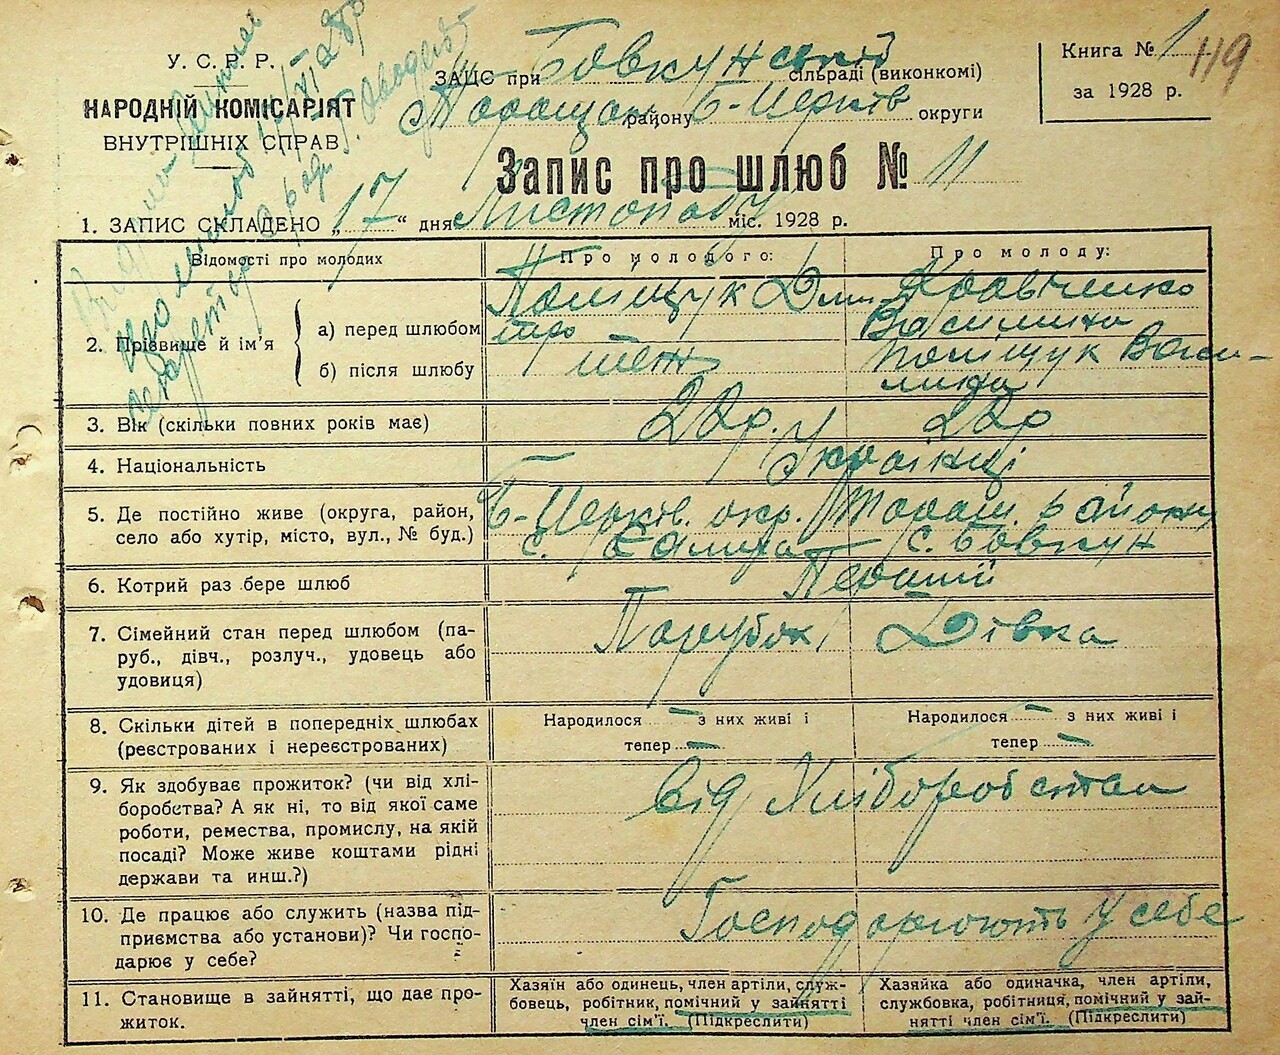 У. С. Р. Р.
НАРОДНІЙ КОМІСАРІЯТ
ВНУТРІШНІХ СПРАВ
ЗАЦС при Бовкунській сільраді (виконкомі)
Таращан. району Б-Церків округи
Книга № 1
за 1928 р.
119
Запис про шлюб № 11
1. ЗАПИС СКЛАДЕНО „17“ дня Листопаду міс. 1928 р.
Відомості про молодих
Про молодого:
Про молоду:
2. Прізвище й ім'я
а) перед шлюбом
Поліщук Дми
тро
Кравченко
Василина
б) після шлюбу
теж
Поліщук Васи-
лина
3. Вік (скільки повних років має)
22р.
22р
4. Національність
Українці
5. Де постійно живе (округа, район,
село або хутір, місто, вул., № буд.)
Б-Церків. окр. Таращ. району
с. с. Бовкун
6. Котрий раз бере шлюб
Перший
7. Сімейний стан перед шлюбом (па-
руб., дівч., розлуч., удовець або
удовиця)
Парубок,
Дівка
8. Скільки дітей в попередніх шлюбах
(реєстрованих і нереєстрованих)
Народилося — з них живі і
тепер —
Народилося — з них живі і
тепер —
9. Як здобуває прожиток? (чи від хлі-
боробства? А як ні, то від якої саме
роботи, ремества, промислу, на якій
посаді? Може живе коштами рідні
держави та инш.?)
Від Хліборобства
10. Де працює або служить (назва під-
приємства або установи)? Чи госпо-
дарює у себе?
Господарюють У себе
11. Становище в зайнятті, що дає про-
житок.
Хазяїн або одинець, член артіли, служ-
бовець, робітник, помічний у зайнятті
член сім'ї. (Підкреслити)
Хазяйка або одиначка, член артіли,
службовка, робітниця, помічний у зай-
нятті член сім'ї. (Підкреслити)